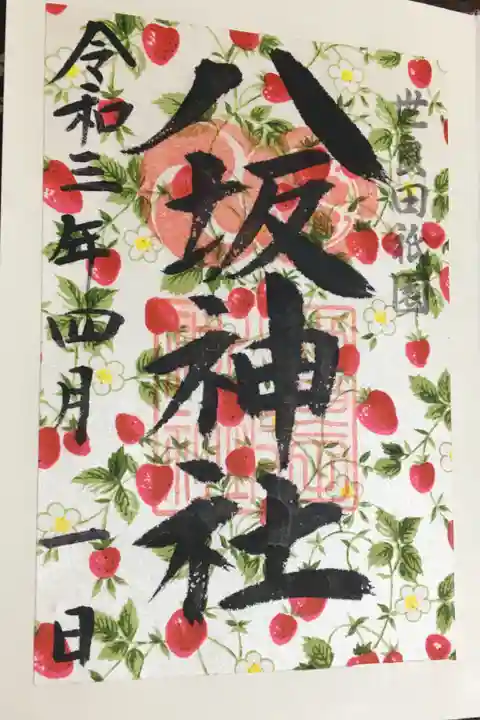 世良田祇園
八坂神社
令和三年四月一日